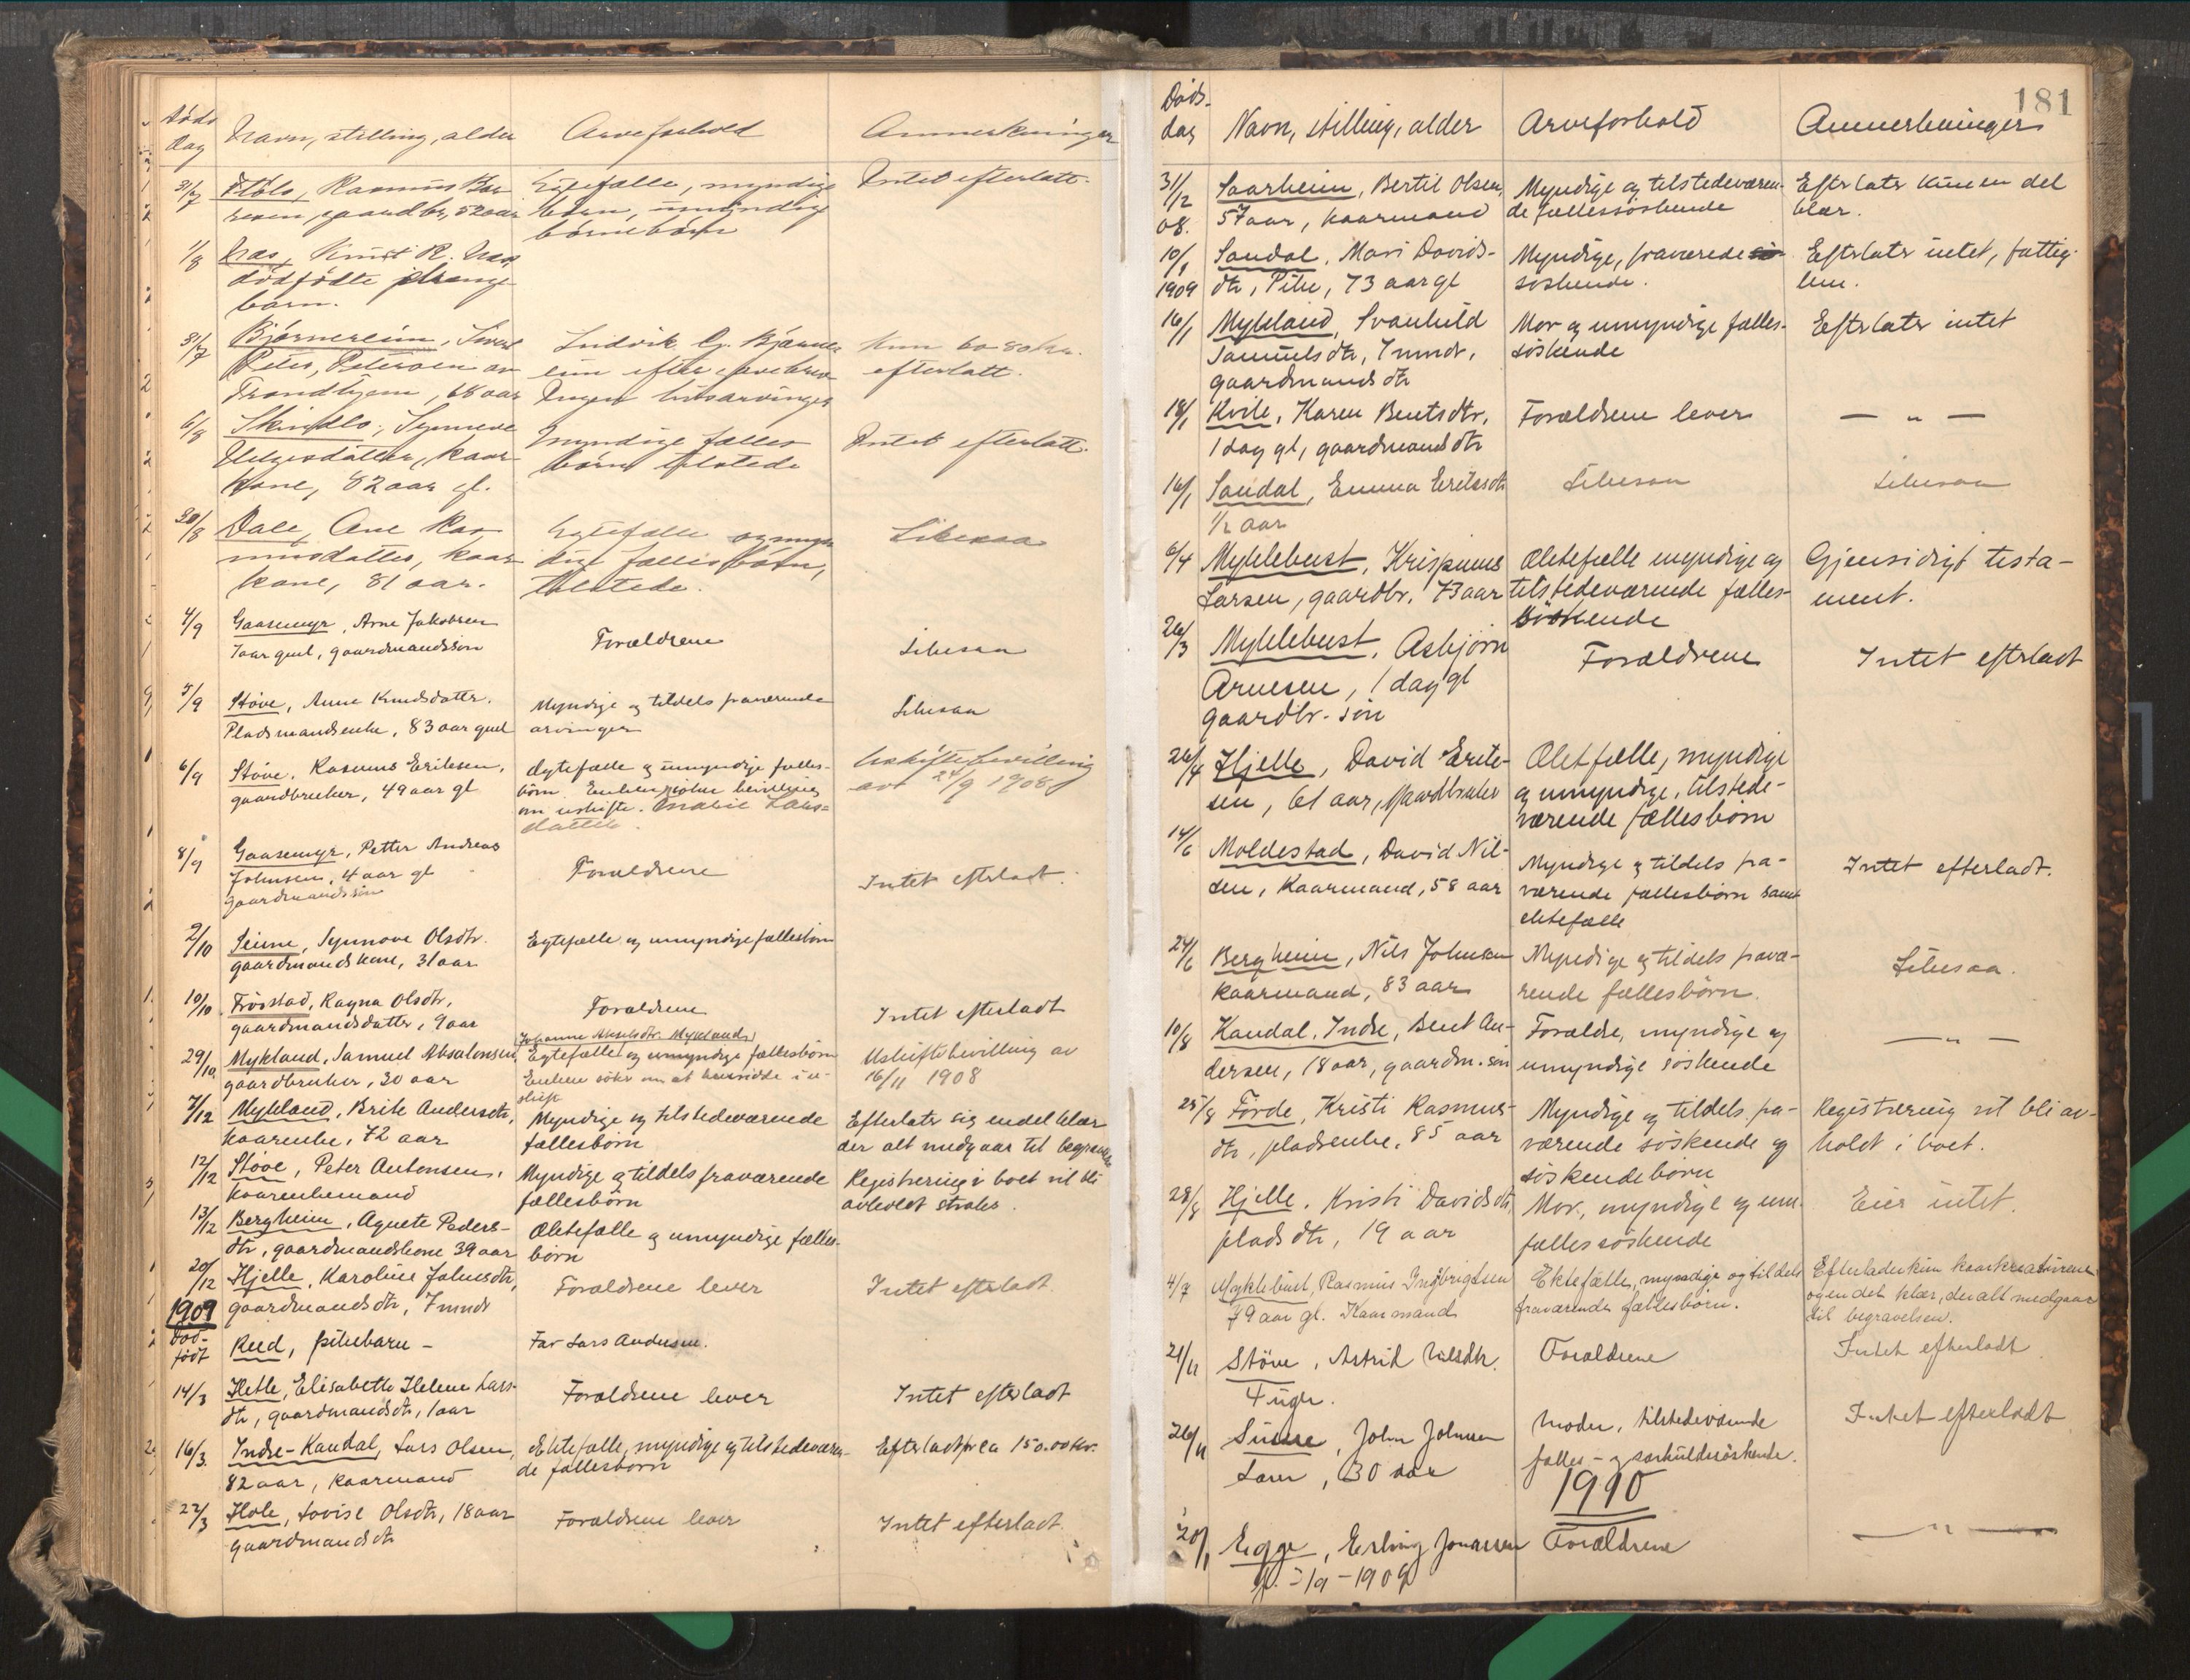 Døds
dag
Navn, stilling, alder
Arveforhold
Anmerkninger
31/7
Rasmus
gaardbr, 52 aar
Egtefælle, myndige
børn, umyndig
børnebørn
Intet efterlatt.
1/8
Næs, Knut R. Næs
dödfödte
barn.
31/7
Bjørnereim,
Peter, Petersen av
Trondhjem, 68 aar
Ludvik
eim efter
Ingen livsarvinger
Kun 60-80 kr.
efterlatt.
6/8
Synneve
Helgesdatter, kaar
kone, 82 aar gl.
Myndige fælles
børn tilstede
Intet efterlatt.
30/8
Dale, Ane Ras
musdatter, kaar
kone, 81 aar.
Egtefælle og myn
dige fællesbørn,
tilstede.
Likesaa
4/9
Gaasemyr, Arne Jakobsen
1 aar guml, gaardmandssøn
Forældrene
Likesaa
5/9
Støve, Anne Knudsdatter.
Pladsmandsenke, 83 aar guml
Myndige og tildels fraværende
arvinger
Likesaa
6/9
Støve, Rasmus Eriksen,
gaardbruker, 49 aar gl
Ægtefælle og umyndige fælles-
børn. Enken söker bevilling
om uskifte. Lars=
datter.
Uskiftebevilling
avt 24/9 1908
8/9
Gaasemyr, Petter Andreas
Johnsen, 4 aar gl
gaardmandssøn
Forældrene
Intet efterladt.
2/10
Seime, Synnove Olsdtr.
gaardmandskone, 31 aar
Egtefælle og umyndige fællesbörn
10/10
Frösstad, Ragna Olsdtr,
gaardmandsdatter, 9 aar
Forældrene
Intet efterladt
29/10
Mykland, Samuel Absalonsen,
gaardbruker, 30 aar
Johanne Akselsdtr. Mykland
Egtefælle og umyndige fællesbørn
Enken söker om at hensidde i u-
skift
Uskiftebevilling av
16/11 1908
7/12
Mykland, Brite Andersdtr,
kaarenke, 72 aar
Myndige og tilstedeværende
fællesbørn
Efterlater sig endel klær
der alt medgaar til begravelse
12/12
Støve, Peter Antonsen,
kaarenkemand
Myndige og tildels fraværende
fællesbørn
Registrering i boet vil bli
avholdt straks.
13/12
Bergheim, Agnete Peders-
dtr, gaardmandskone 39 aar
Ektefælle og umyndige fælles-
børn
20/12
Hjelle, Karoline Johnsdtr,
gaardmandsdtr, 7 mndr
Forældrene lever
Intet efterladt.
1909
Död-
född
Reed, pikebarn -
Far Lars Andersen.
14/3
Hetle, Elisabeth Helene Lars-
dtr, gaardmandsdtr, 1 aar
Forældrene lever
Intet efterladt
16/3
Indre-Kandal, Lars Olsen,
82 aar, kaarmand
Ektefælle, myndige og tilstedeværen-
de fællesbørn
Efterladt for ca 150.00 kr.
22/3
Hole, Lovise Olsdtr, 18 aar
gaardmandsdtr
Forældrene lever
Intet efterladt.
181
Døds-
dag
Navn, stilling, alder
Arveforhold
Anmerkninger
31/12
08.
Saarheim, Bertil Olsen,
57 aar, kaarmand
Myndige og tilstedeværen-
de fællessøskende
Efterlater kun en del
klær.
10/1
1909
Sandal, Mari Davids-
dtr, Pike, 73 aar gl
Myndige, fraværede
søskende.
Efterlater intet, fattig-
lem.
16/1
Mykland, Svanhild
Samuelsdtr, 7 mndr,
gaardmandsdtr
Mor og umyndige fælles-
søskende
Efterlater intet
18/1
Kvile, Karen Bentsdtr,
1 dag gl, gaardmandsdtr
Forældrene lever
— " —
16/1
Sandal, Emma Eriksdtr
1/2 aar
Likesaa
Likesaa
6/4
Myklebust, Krispinus
Larsen, gaardbr. 73 aar
Ektefælle myndige og
tilstedeværende fælles-
söskende
Gjensidigt testa-
ment.
26/3
Myklebust, Asbjørn
Arnesen, 1 dag gl
gaardbr-søn
Forældrene
Intet efterladt
26/4
Hjelle, David Erik-
sen, 61 aar, gaardbruker
Ektefælle, myndige
og umyndige, tilstede-
værende fællesbørn
14/6
Moldestad, David Nil-
sen, Kaarmand, 58 aar
Myndige og tildels fra-
værende fællesbørn samt
ektefælle
Intet efterladt.
24/6
Bergheim, Nils Johnsen
Kaarmand, 83 aar
Myndige og tildels fravæ-
rende fællesbørn.
Likesaa.
10/8
Kandal, Indre, Bent An-
dersen, 18 aar, gaardm.søn
Forældre, myndige og
umyndige søskende
— " —
25/8
Förde, Kristi Rasmus-
dtr, pladsenke, 85 aar
Myndige og tildels fra-
værende søskende og
søskendebørn
Registrering vil bli av-
holdt i boet.
28/8
Hjelle, Kristi Davidsdtr,
pladsdtr, 19 aar
Mor, myndige og um.
fællessøskende
Eier intet.
4/7
Myklebust, Rasmus Ingbrigtsen
79 aar gl. Kaarmand
Ektefælle, myndige og tildels
fraværende fællesbørn.
Efterlader kun kaarkreaturene
og en del klær, der alt medgaar
til begravelsen.
21/11
Støve, Astrid Nilsdtr.
4 uger.
Forældrene
Intet efterladt
26/11
John Johnsen
30 aar
Moder, tilstedeværende
fælles- og særkuldsöskende.
Intet efterladt
1910
20/1
Egge, Erling Jonassen
1909
Forældrene
— " —